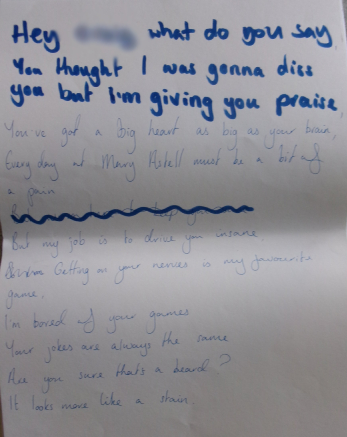 Hey what do you say
You thought I was gonna diss
you but I'm giving you praise,
You've got a big heart as big as your brain,
Every day at Mary Astell must be a bit of
a pain
But my job is to drive you insane.
Getting on your nerves is my favourite
game.
I'm bored of your games
Your jokes are always the same
Are you sure thats a beard?
It looks more like a stain